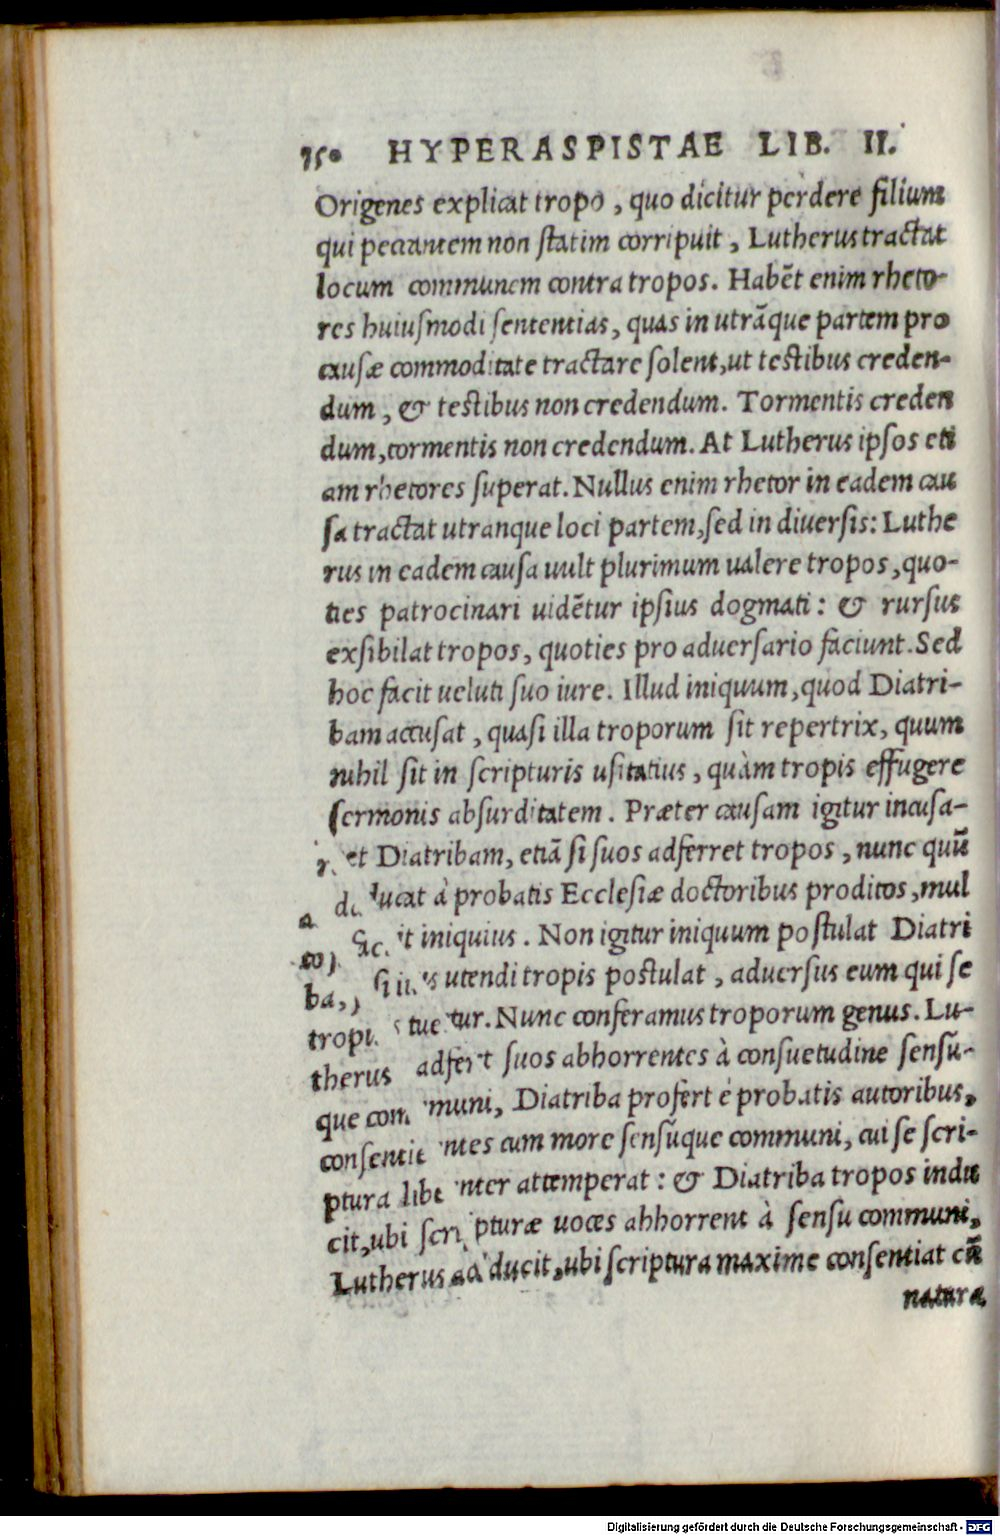 750 HYPERASPISTAE LIB. II.
Origenes explicat tropo, quo dicitur perdere filium
qui peccantem non ſtatim corripuit, Lutherus tractat
locum communem contra tropos. Habẽt enim rheto-
res huiuſmodi ſententias, quas in utrãque partem pro
cauſæ commoditate tractare ſolent, ut teſtibus creden-
dum, & teſtibus non credendum. Tormentis creden
dum, tormentis non credendum. At Lutherus ipſos eti
am rhetores ſuperat. Nullus enim rhetor in eadem cau
ſa tractat utranque loci partem, ſed in diuerſis: Luthe
rus in eadem cauſa uult plurimum ualere tropos, quo-
ties patrocinari uidẽtur ipſius dogmati: & rurſus
exſibilat tropos, quoties pro aduerſario faciunt. Sed
hoc facit ueluti ſuo iure. Illud iniquum, quod Diatri-
bam accuſat, quaſi illa troporum ſit repertrix, quum
nihil ſit in ſcripturis uſitatius, quàm tropis effugere
ſermonis abſurditatem. Præter cauſam igitur incuſa-
ret Diatribam, etiã ſi ſuos adferret tropos, nunc quũ
adducat à probatis Eccleſiæ doctoribus proditos, mul
to facit iniquius. Non igitur iniquum poſtulat Diatri
ba, ſi ius utendi tropis poſtulat, aduerſus eum qui ſe
tropis tuetur. Nunc conferamus troporum genus. Lu-
therus adfert ſuos abhorrentes à conſuetudine ſenſũ-
que communi, Diatriba profert è probatis autoribus,
conſentientes cum more ſenſũque communi, cui ſe ſcri-
ptura libenter attemperat: & Diatriba tropos indu
cit, ubi ſcripturæ uoces abhorrent à ſenſu communi,
Lutherus adducit, ubi ſcriptura maxime conſentiat cũ
natura
Digitalisierung gefördert durch die Deutsche Forschungsgemeinschaft - DFG